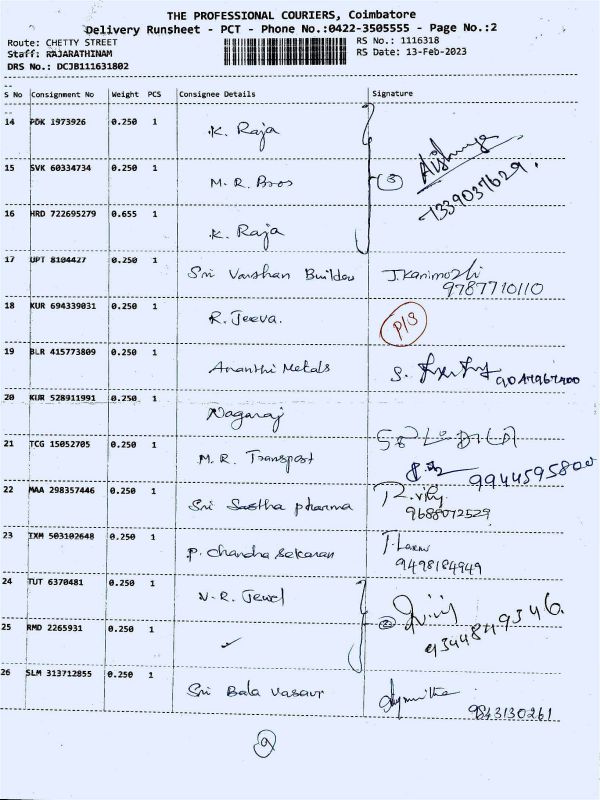 THE PROFESSIONAL COURIERS, Coimbatore
Delivery Runsheet - PCT - Phone No.:0422-3505555 - Page No.:2
Route: CHETTY STREET
RS No.: 1116318
Staff: RAJARATHINAM
RS Date: 13-Feb-2023
DRS No.: DCJB111631802
S No Consignment No Weight PCS Consignee Details Signature
14 PDK 1973926 0.250 1 K. Raja
15 SVK 60334734 0.250 1 M. R. Bros (3)
16 HRD 722695279 0.655 1 K. Raja
17 UPT 8104427 0.250 1 Sri Varshan Builders J. Kanimozhi
9787710110
18 KUR 694339031 0.250 1 R. Jeeva. P/S
19 BLR 415773809 0.250 1 Ananthi Metals S.
20 KUR 528911991 0.250 1 Nagaraj
21 TCG 15052705 0.250 1 M. R. Transport
9944595800
22 MAA 298357446 0.250 1 Sri Sastha pharma
9688072529
23 IXM 503102648 0.250 1 P. chandra sekaran
9498184949
24 TUT 6370481 0.250 1 N. R. Jewel (2)
25 RMD 2265931 0.250 1 ✓
9344849346.
26 SLM 313712855 0.250 1 Sri Bala
9843130261
9